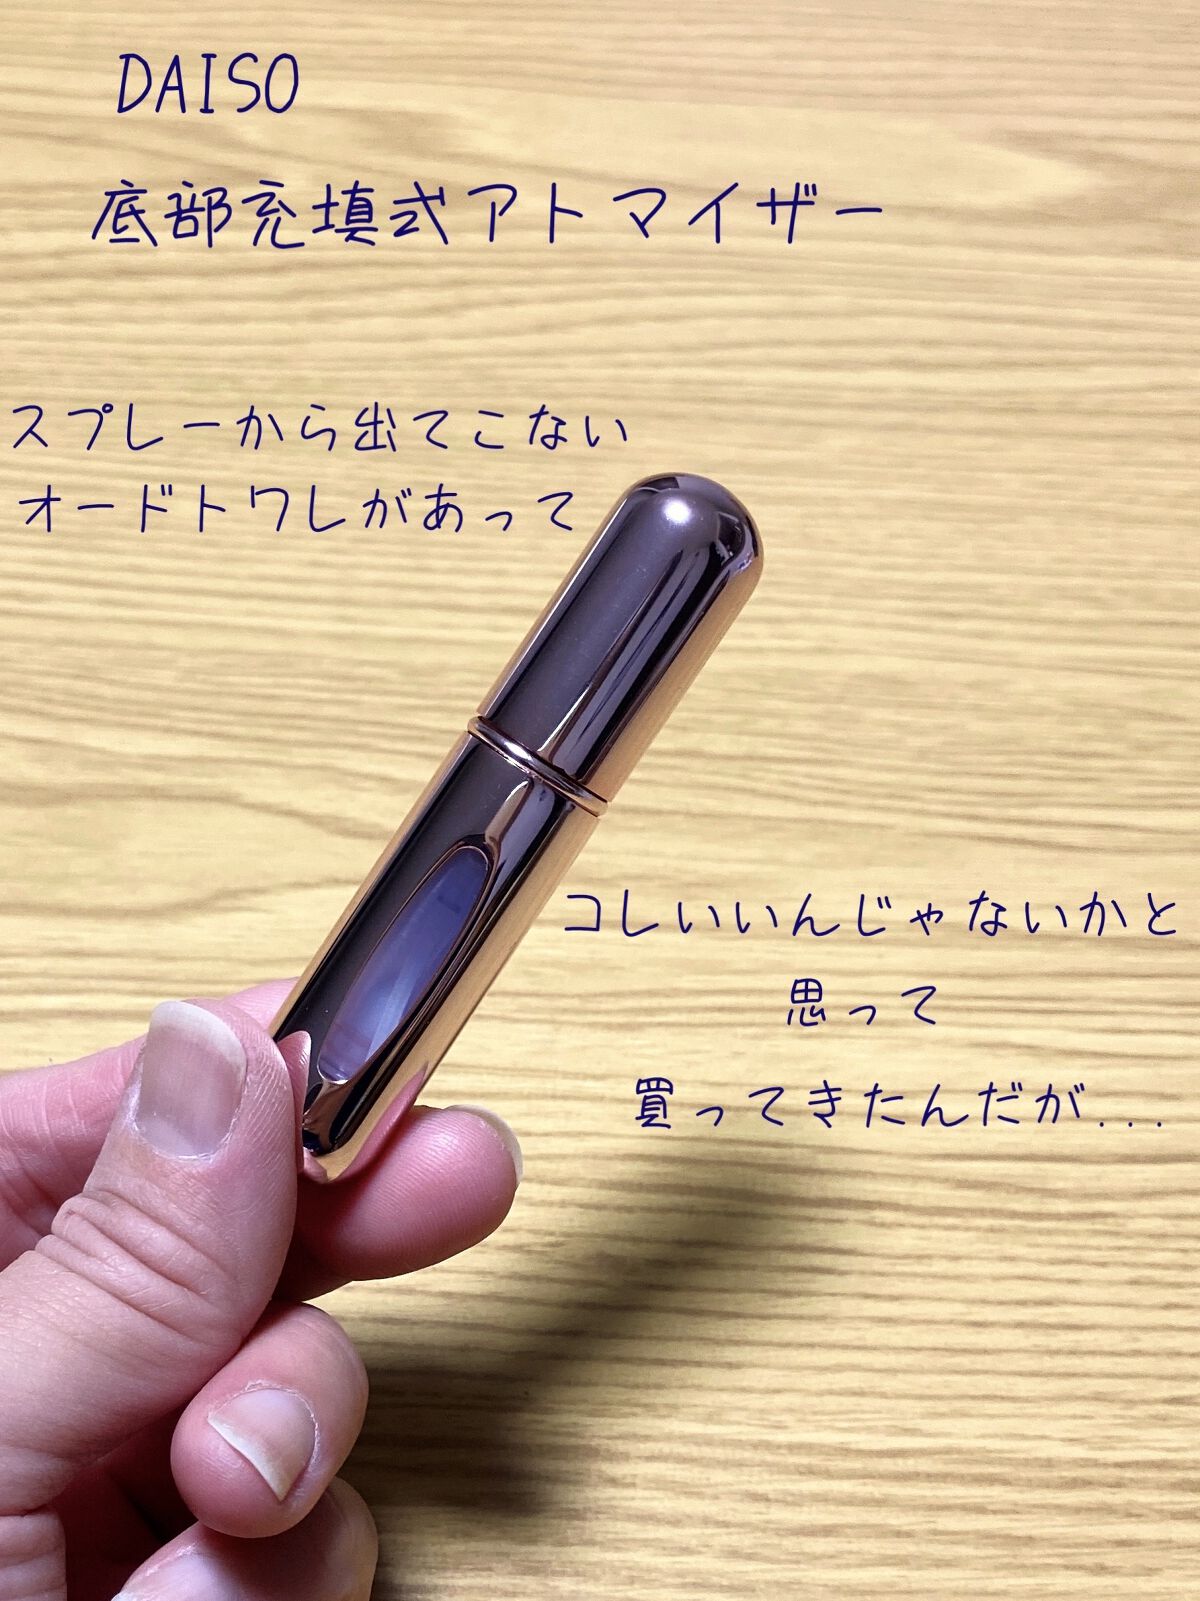 DAISO
底部充填式アトマイザー
スプレーから出てこない
オードトワレがあって
コレいいんじゃないかと
思って
買ってきたんだが...